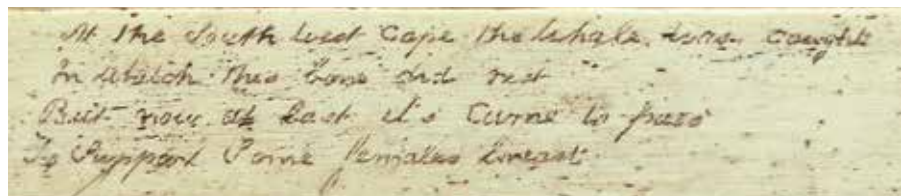 At the South West Cape the Whale was caught
In which this bone did rest
But now at last it's Came to pass
To Support Some females breast